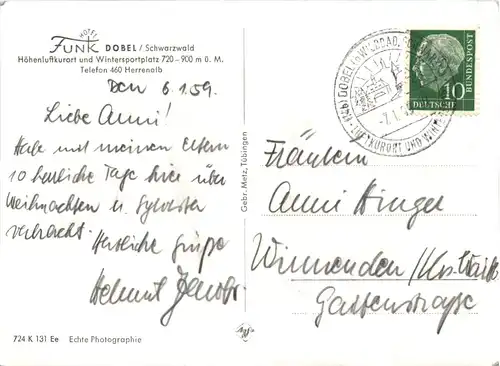 HOTEL
FUNK DOBEL / Schwarzwald
Höhenluftkurort und Wintersportplatz 720-900 m ü. M.
Telefon 460 Herrenalb
Den 6.1.59.
Liebe Anni!
Habe mit meinen Eltern
10 herrliche Tage hier über
Weihnachten u. Sylvester
verbracht.
Herzliche Grüße
Helmut
724 K 131 Ee Echte Photographie
Gebr. Metz, Tübingen
DOBEL
LUFTKURORT UND
10
DEUTSCHE
BUNDESPOST
Fräulein
Anni
Winnenden / Krs.
Gartenstraße